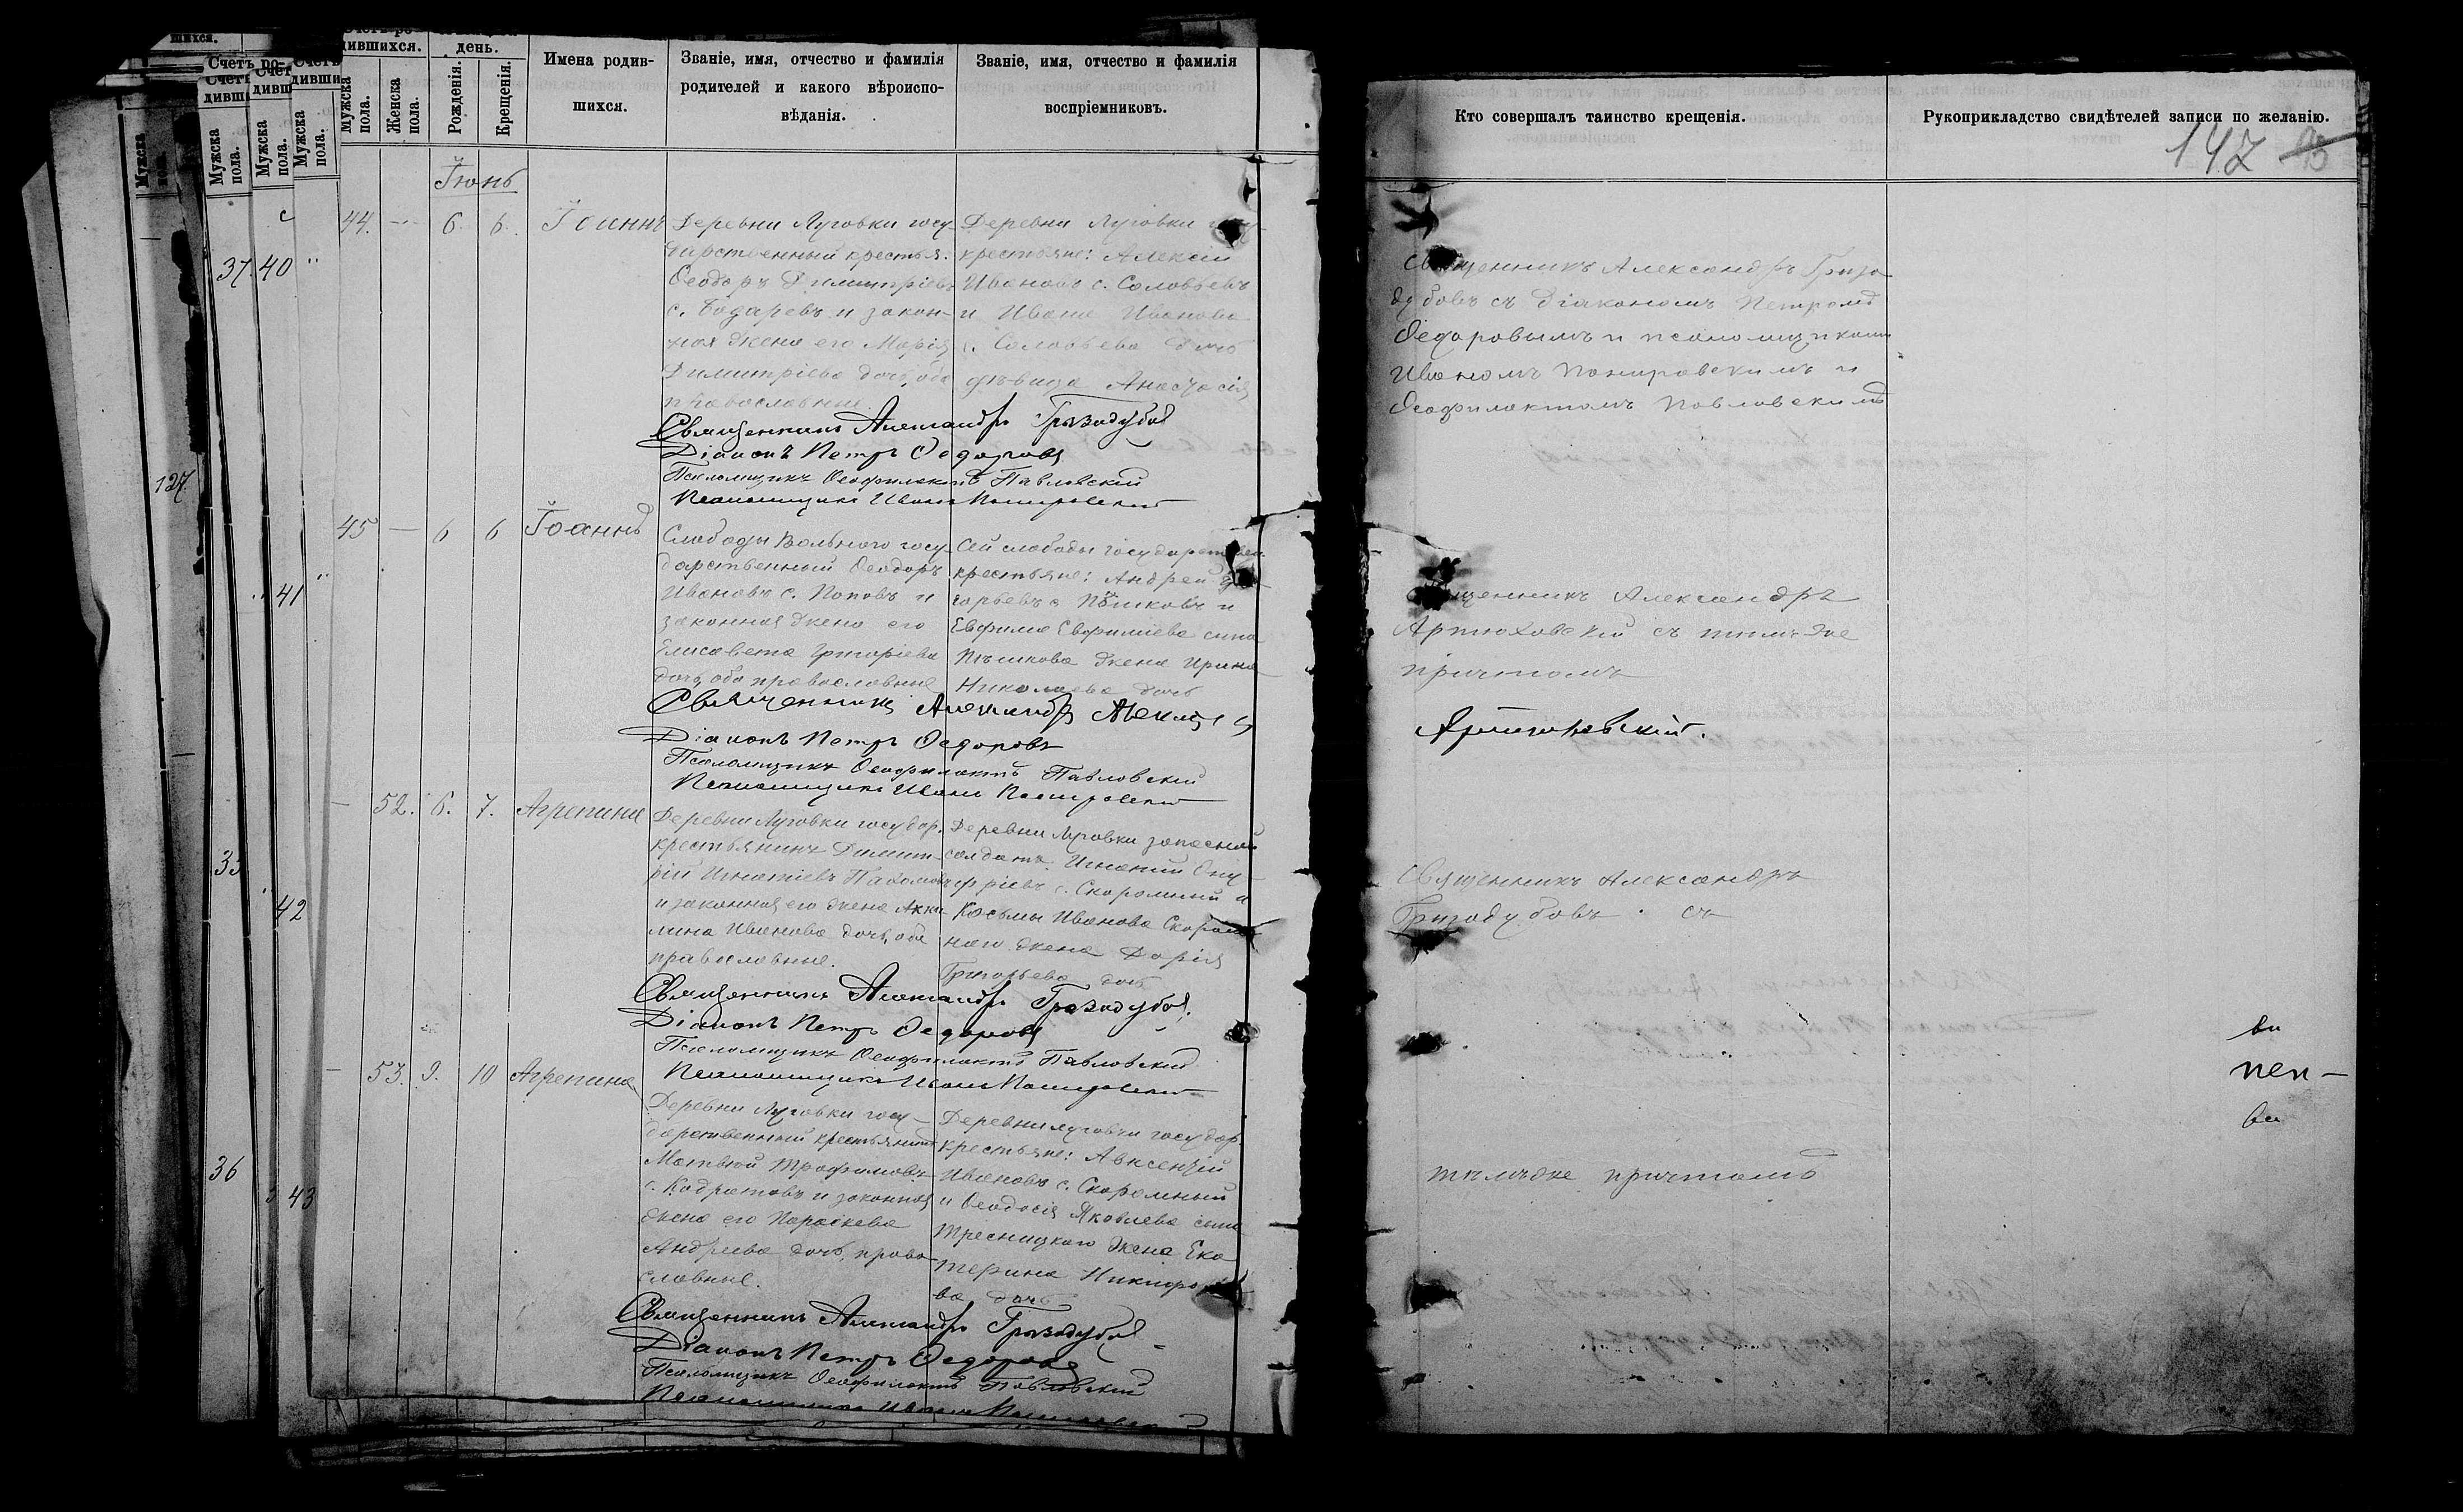 Счетъ родившихся.
день.
Мужска пола.
Женска пола.
Рожденія.
Крещенія.
Имена родив-
шихся.
Званіе, имя, отчество и фамилія
родителей и какого вѣроиспо-
вѣданія.
Званіе, имя, отчество и фамилія
воспріемниковъ.
Іюнь
44. — 6. 6. Іоаннъ
Деревни Луговки госу-
дарственный крестья.
Ѳеодоръ Димитріевъ
с. Бодаревъ и закон-
ная жена его Марія
Димитріева дочь, оба
православные.
Деревни Луговки
крестьяне: Алексій
Ивановъ с. Соловьевъ
и Ивана Иванова
с. Соловьева дочь
дѣвица Анастасія
Священникъ Александръ Гризодубовъ
Діаконъ Петръ Ѳедоровъ
Псаломщикъ Ѳеофилактъ Павловскій
Псаломщикъ Иванъ
45 — 6 6 Іоаннъ
Слободы Вольного госу-
дарственный Ѳеодоръ
Ивановъ с. Поповъ и
законная жена его
Елисавета Григоріева
дочь, оба православные
Сей слободы государствен.
крестьяне: Андрей
горьевъ с. Пѣшковъ и
Евфима Евфиміева сына
Пѣшкова жена Ирина
Николаева дочь
Священникъ Александръ
Діаконъ Петръ Ѳедоровъ
Псаломщикъ Ѳеофилактъ Павловскій
Псаломщикъ Иванъ
— 52. 6. 7. Агрепина
Деревни Луговки государ.
крестьянинъ Димит-
рій Игнатіевъ Пахомовъ
и законная его жена Аки-
лина Иванова дочь, оба
православные.
Деревни Луговки запасный
солдатъ Игнатій Ону-
фріевъ с. Скоромный и
Косьмы Иванова Скором-
наго жена Дарія
Григорьева дочь
Священникъ Александръ Гризодубовъ
Діаконъ Петръ Ѳедоровъ
Псаломщикъ Ѳеофилактъ Павловскій
Псаломщикъ Иванъ
— 53. 9. 10 Агрепина
Деревни Луговки госу-
дарственный крестьянинъ
Матвѣй Трофимовъ
с. Кодратовъ и законная
жена его Параскева
Андреева дочь, право-
славные.
Деревни Луговки государ.
крестьяне: Авксентій
Ивановъ с. Скоромный
и Ѳеодосія Яковлева сына
Тресницкаго жена Ека-
терина Никифоро-
ва дочь
Священникъ Александръ Гризодубовъ
Діаконъ Петръ Ѳедоровъ
Псаломщикъ Ѳеофилактъ Павловскій
Псаломщикъ Иванъ
127.
37
40
41
35
42
36
43
Кто совершалъ таинство крещенія.
Рукоприкладство свидѣтелей записи по желанію.
147
Священникъ Александръ Гризо-
дубовъ съ діакономъ Петромъ
Ѳедоровымъ и псаломщиками
Иваномъ и
Ѳеофилактомъ Павловскимъ
Священникъ Александръ
Артюховскій съ тѣмъ же
причтомъ
Артюховскій.
Священникъ Александръ
Гризодубовъ съ
тѣмъ же причтомъ